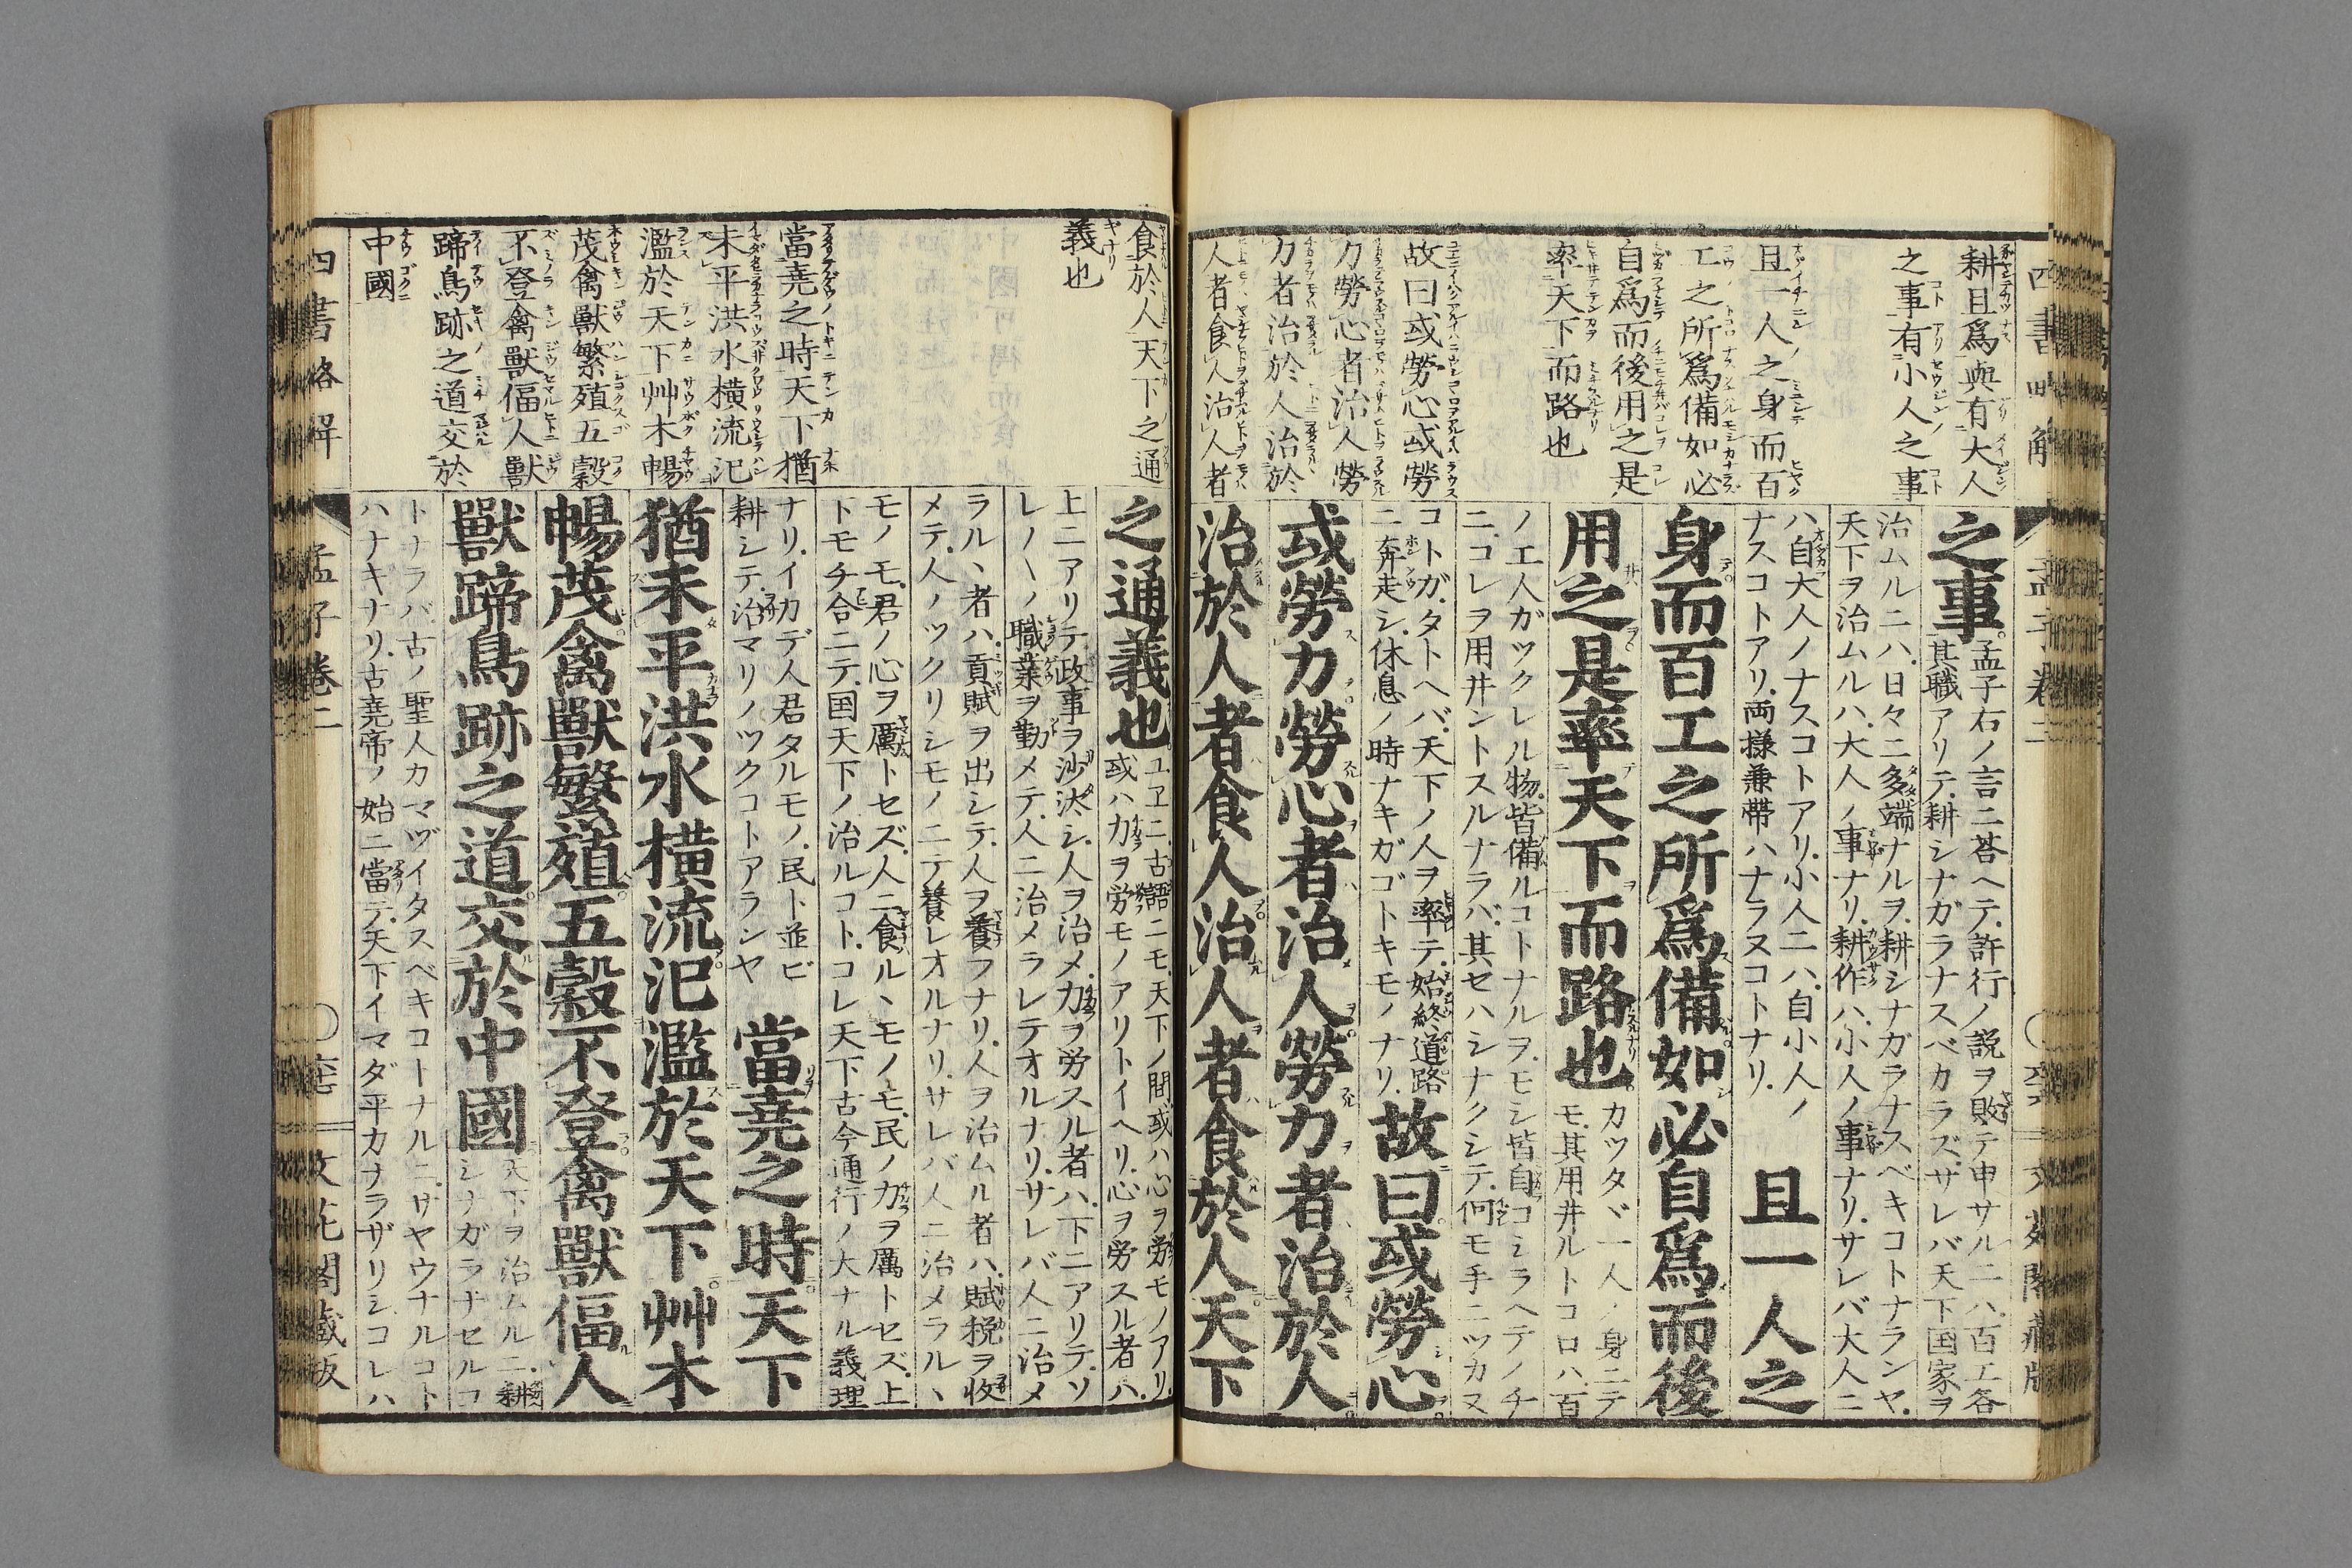 四書略解
孟子巻二
耕且爲與有大人
之事有小人之事
且一人之身而百
工之所爲備如必
自爲而後用之是
率天下而路也
故曰或勞心或勞
力勞心者治人勞
力者治於人治於
人者食人治人者
之事。孟子右ノ言ニ荅ヘテ許行ノ説ヲ敗テ申サルニハ百工各
其職アリテ耕シナガラナスベカラズサレバ天下国家ヲ
治ムルニハ日々ニ多端ナルヲ耕シナガラナスベキコトナランヤ
天下ヲ治ムルハ大人ノ事ナリ耕作ハ小人ノ事ナリサレバ大人ニ
ハ自大人ノナスコトアリ小人ニハ自小人ノ
ナスコトアリ両様兼帯ハナラヌコトナリ
且一人之
身而百工之所爲備如必自爲而後
用之是率天下而路也
カツタヾ一人ノ身ニテ
モ其用井ルトコロハ百
ノ工人ガツクレル物皆備ルコトナルヲモシ皆自コシラヘテノチ
ニコレヲ用井ントスルナラバ其セハシナクシテ何モ手ニツカヌ
コトガタトヘバ天下ノ人ヲ率テ始終道路
ニ奔走シ休息ノ時ナキガゴトキモノナリ
故曰或勞心
或勞力勞心者治人勞力者治於人
治於人者食人治人者食於人天下
食於人天下之通
義也
當堯之時天下猶
未平洪水橫流氾
濫於天下艸木暢
茂禽獸繁殖五穀
不登禽獸偪人獸
蹄鳥跡之道交於
中國
之通義也
ユヱニ古語ニモ天下ノ間或ハ心ヲ労モノアリ
或ハ力ヲ労モノアリトイヘリ心ヲ労スル者ハ
上ニアリテ政事ヲ沙汰シ人ヲ治メ力ヲ労スル者ハ下ニアリテソ
レ〱ノ職業ヲ勤メテ人ニ治メラレテオルナリサレバ人ニ治メ
ラルヽ者ハ貢賦ヲ出シテ人ヲ養フナリ人ヲ治ムル者ハ賦税ヲ收
メテ人ノツクリシモノニテ養レオルナリサレバ人ニ治メラルヽ
モノモ君ノ心ヲ厲トセズ人ニ食ルヽモノモ民ノ力ヲ厲トセズ上
下モチ合ニテ国天下ノ治ルコトコレ天下古今通行ノ大ナル義理
ナリイカデ人君タルモノ民ト並ビ
耕シテ治マリノツクコトアランヤ
當堯之時天下
猶未平洪水橫流氾濫於天下艸木
暢茂禽獸繁殖五穀不登禽獸偪人
獸蹄鳥跡之道交於中國
天下ヲ治ムルニ耕
シナガラナセルコ
トナラバ古ノ聖人カマヅイタスベキコトナルニサヤウナルコト
ハナキナリ古堯帝ノ始ニ當テ天下イマダ平カナラザリシコレハ
四書略解
孟子巻二
文花閣蔵板